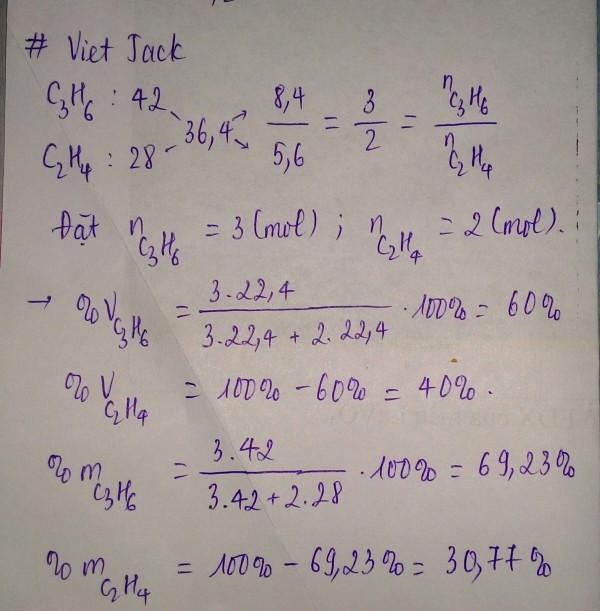 # Viet Jack
C₃H₆ : 42 ↘ 36,4 ↗ 8,4/5,6 = 3/2 = nC₃H₆/nC₂H₄
C₂H₄ : 28 ↗ ↘
Đặt nC₃H₆ = 3 (mol) ; nC₂H₄ = 2 (mol).
→ %VC₃H₆ = 3.22,4/(3.22,4 + 2.22,4) . 100% = 60%
%VC₂H₄ = 100% - 60% = 40%.
%mC₃H₆ = 3.42/(3.42 + 2.28) . 100% = 69,23%
%mC₂H₄ = 100% - 69,23% = 30,77%